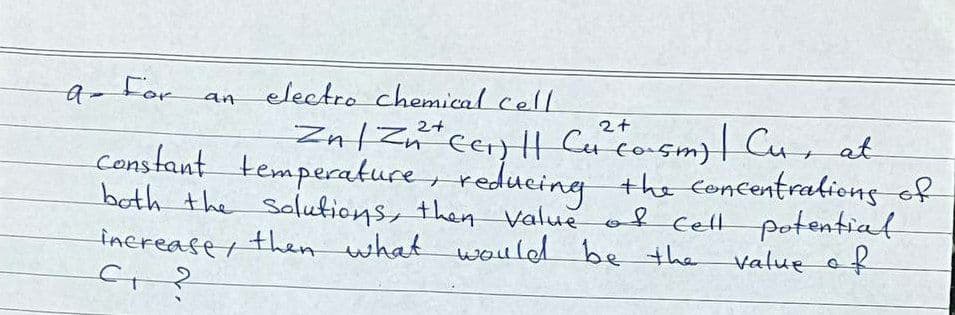 a- For an electro chemical cell
Zn | Zn²⁺ (C₁) || Cu²⁺ (0.5m) | Cu, at
constant temperature, reducing the concentrations of
both the solutions, then value of cell potential
increase, then what would be the value of
C₁ ?